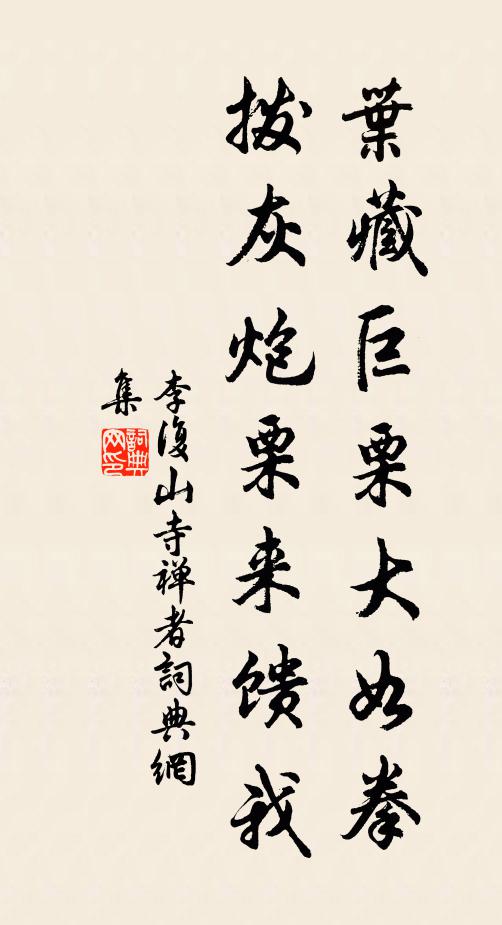 葉藏巨栗大如拳
拨灰炮栗来馈我
李復山寺禅者詞典網
集
詞典网印